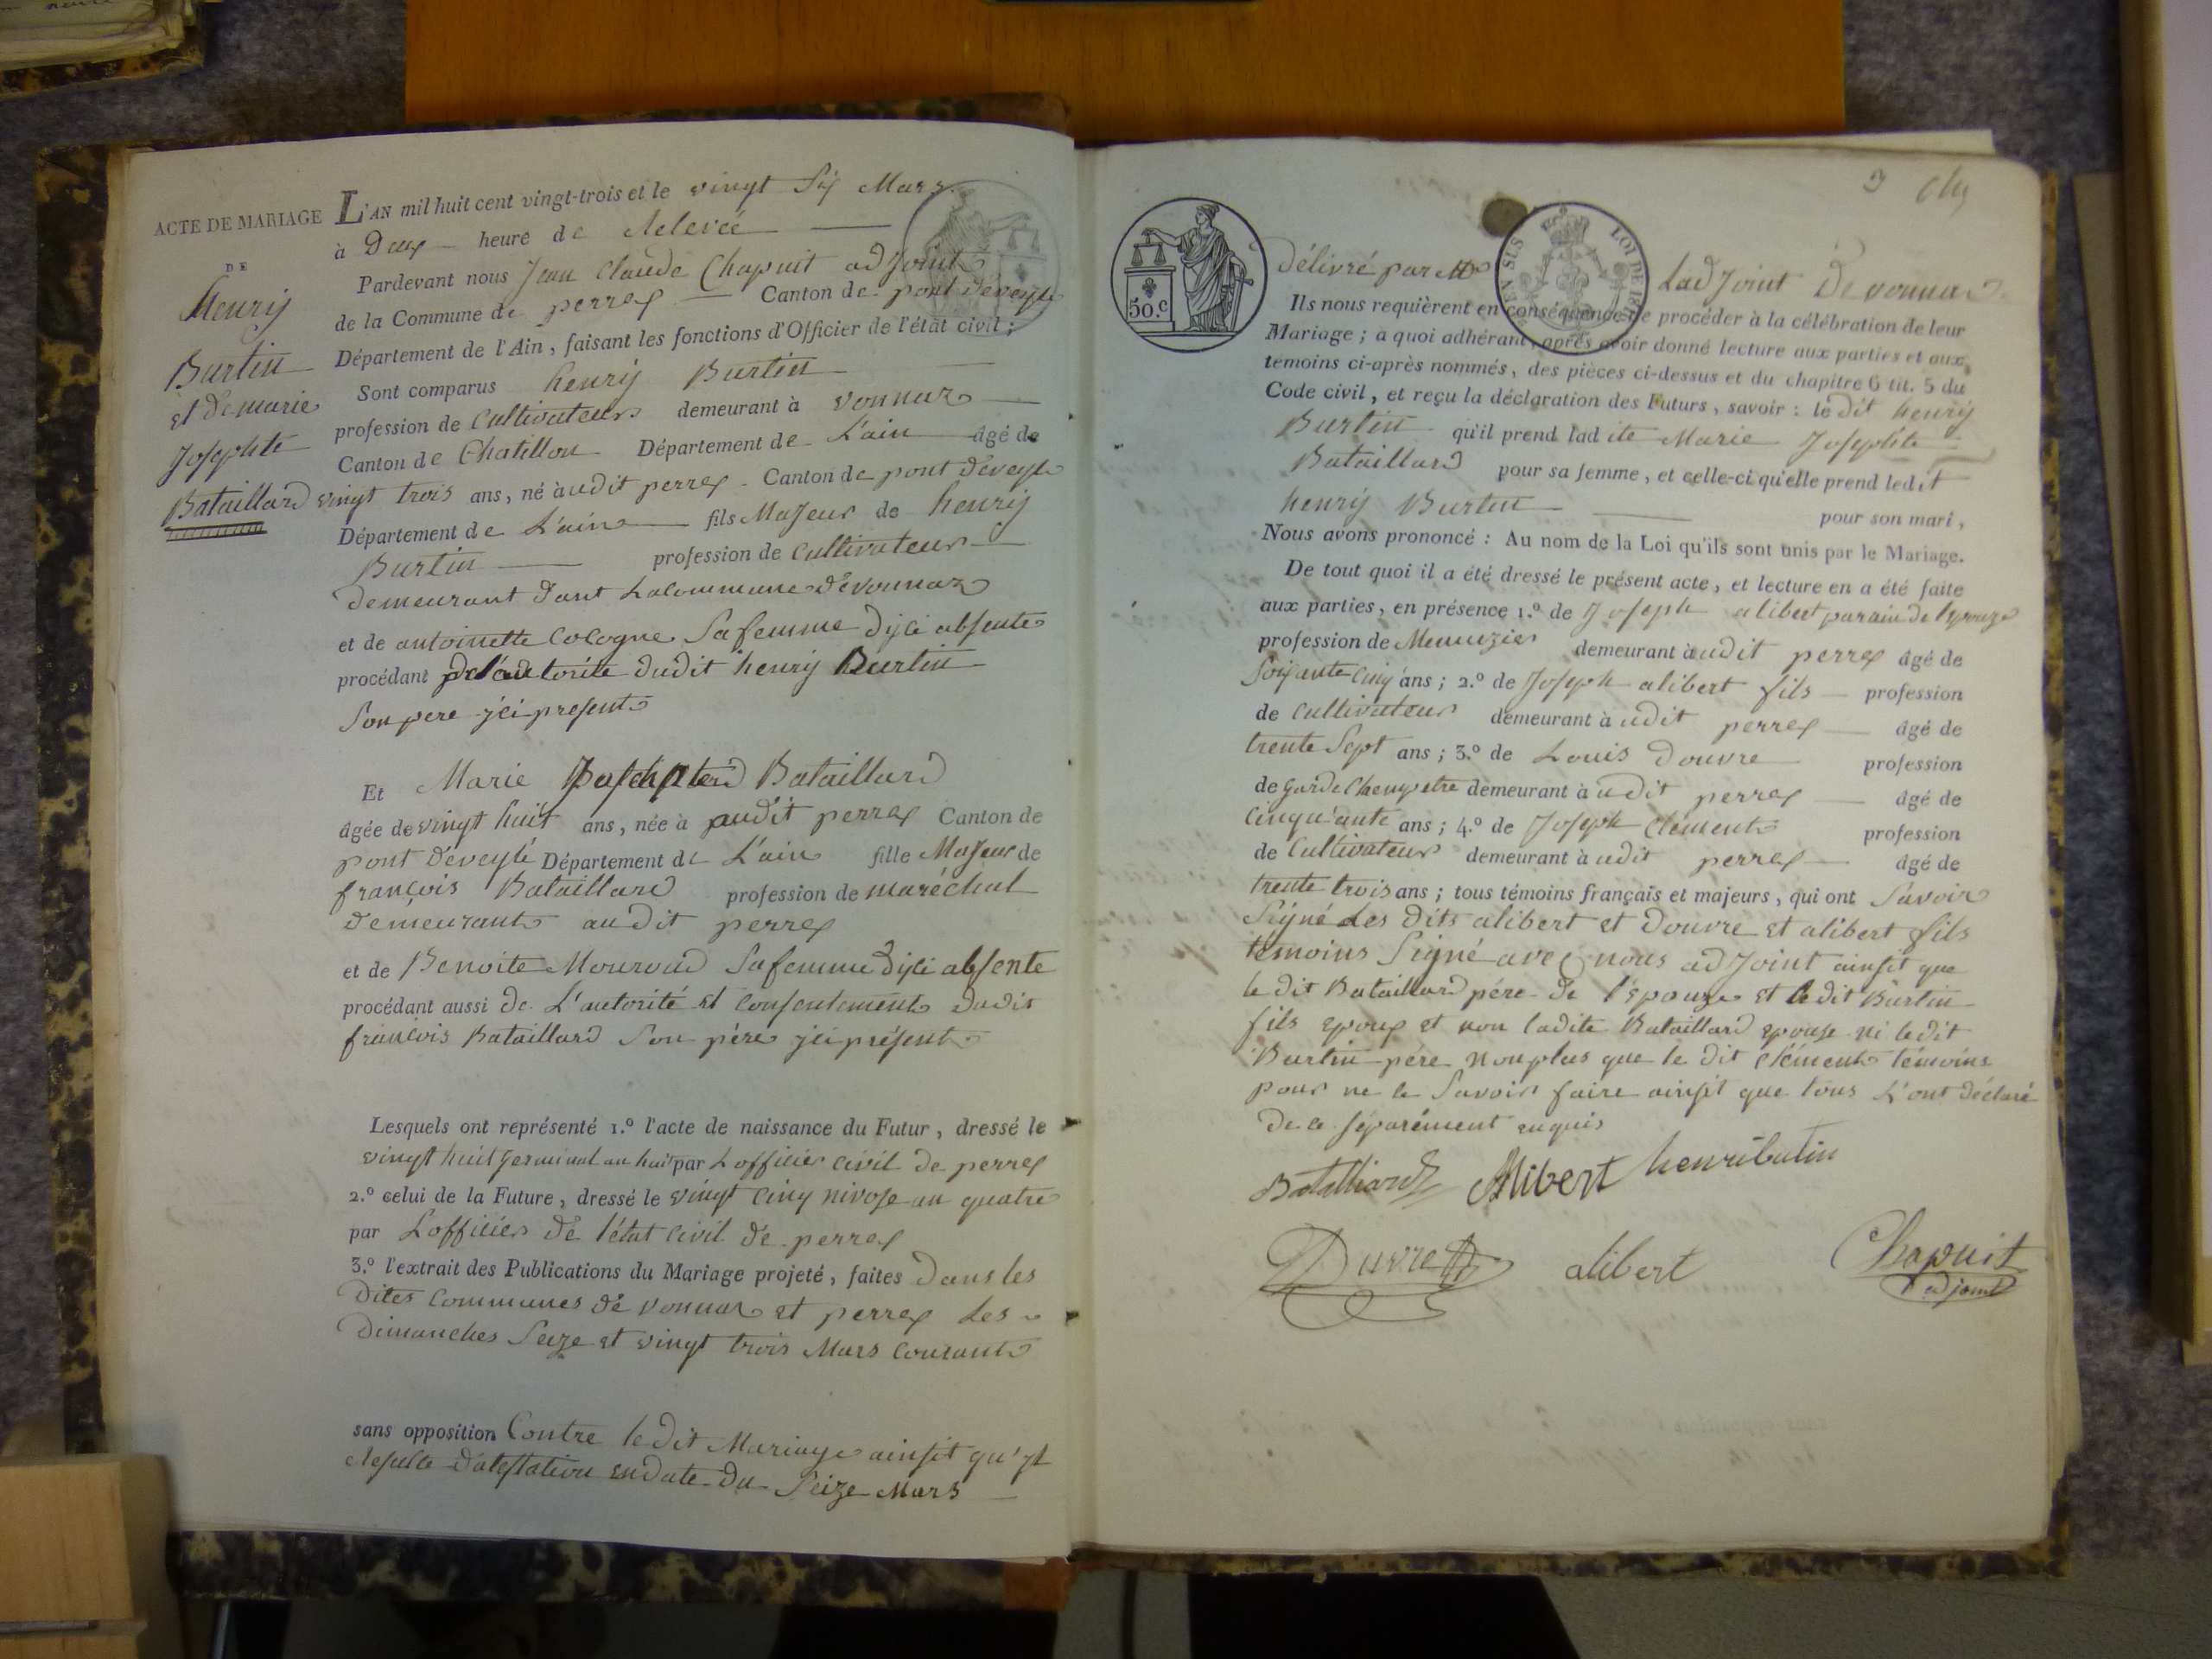 ACTE DE MARIAGE
DE
henrij
Burtin
et de marie
Josephte
Bataillard
L'AN mil huit cent vingt-trois et le vingt six Mars
à Deux heure de Relevée
Pardevant nous Jean Claude Chapuit adjoint
de la Commune de perrex Canton de pont deveyle
Département de l'Ain, faisant les fonctions d'Officier de l'état civil ;
Sont comparus henrij Burtin
profession de Cultivateur demeurant à vonnaz
Canton de Chatillon Département de L'ain âgé de
vingt trois ans, né à udit perrex Canton de pont deveyle
Département de L'ain fils Majeur de henrij
Burtin profession de Cultivateur
demeurant dant La commune de vonnaz
et de antoinette Cologne Sa femme dijci absente
procédant de l'autorité dudit henrij Burtin
Son pere jci present
Et Marie Bataillard
âgée de vingt huit ans, née à audit perrex Canton de
pont deveyle Département de L'ain fille Majeur de
françois Bataillard profession de maréchal
demeurant au dit perrex
et de Benoite Mouroud Sa femme dijci absente
procédant aussi de L'autorité et Consentement dudit
françois Bataillard Son père jci présent
Lesquels ont représenté 1.º l'acte de naissance du Futur, dressé le
vingt huit germinal an huit par L officier civil de perrex
2.º celui de la Future, dressé le vingt cinq nivose an quatre
par L'officier de l'état civil de perrex
3.º l'extrait des Publications du Mariage projeté, faites dans les
dites Communes de vonnaz et perrex Les
dimanches Seize et vingt trois Mars Courant
sans opposition Contre le dit Mariage ainsit qu'jl
Resulte d'atestation en date du Seize Mars
50.C
EN SUS
LOI DE
3
délivré par Mr Ladjoint de vonnaz
Ils nous requièrent en conséquence de procéder à la célébration de leur
Mariage ; à quoi adhérant, après avoir donné lecture aux parties et aux
témoins ci-après nommés, des pièces ci-dessus et du chapitre 6 tit. 5 du
Code civil, et reçu la déclaration des Futurs, savoir : le dit henrij
Burtin qu'il prend ladite Marie Josephte
Bataillard pour sa femme, et celle-ci qu'elle prend ledit
henrij Burtin pour son mari,
Nous avons prononcé : Au nom de la Loi qu'ils sont unis par le Mariage.
De tout quoi il a été dressé le présent acte, et lecture en a été faite
aux parties, en présence 1.º de Joseph alibert parain de l'epouze
profession de Menuzier demeurant à udit perrex âgé de
soixante cinq ans ; 2.º de Joseph alibert fils profession
de Cultivateur demeurant à udit perrex âgé de
trente Sept ans ; 3.º de Louis douvre profession
de garde Champetre demeurant à udit perrex âgé de
Cinquante ans ; 4.º de Joseph Clément profession
de Cultivateur demeurant à udit perrex âgé de
trente trois ans ; tous témoins français et majeurs, qui ont Savoir
Signé Les dits alibert et Douvre et alibert fils
témoins Signé avec nous adjoint ainsit que
le dit Bataillard pére de l'epouze et le dit Burtin
fils epoux et non ladite Bataillard epouse ni le dit
Burtin pére non plus que le dit Clément témoins
pour ne le Savoir faire ainsit que tous L'ont déclaré
de ce séparément enquis
Batalliard Alibert henributin
Duvre alibert Chapuit
adjoint